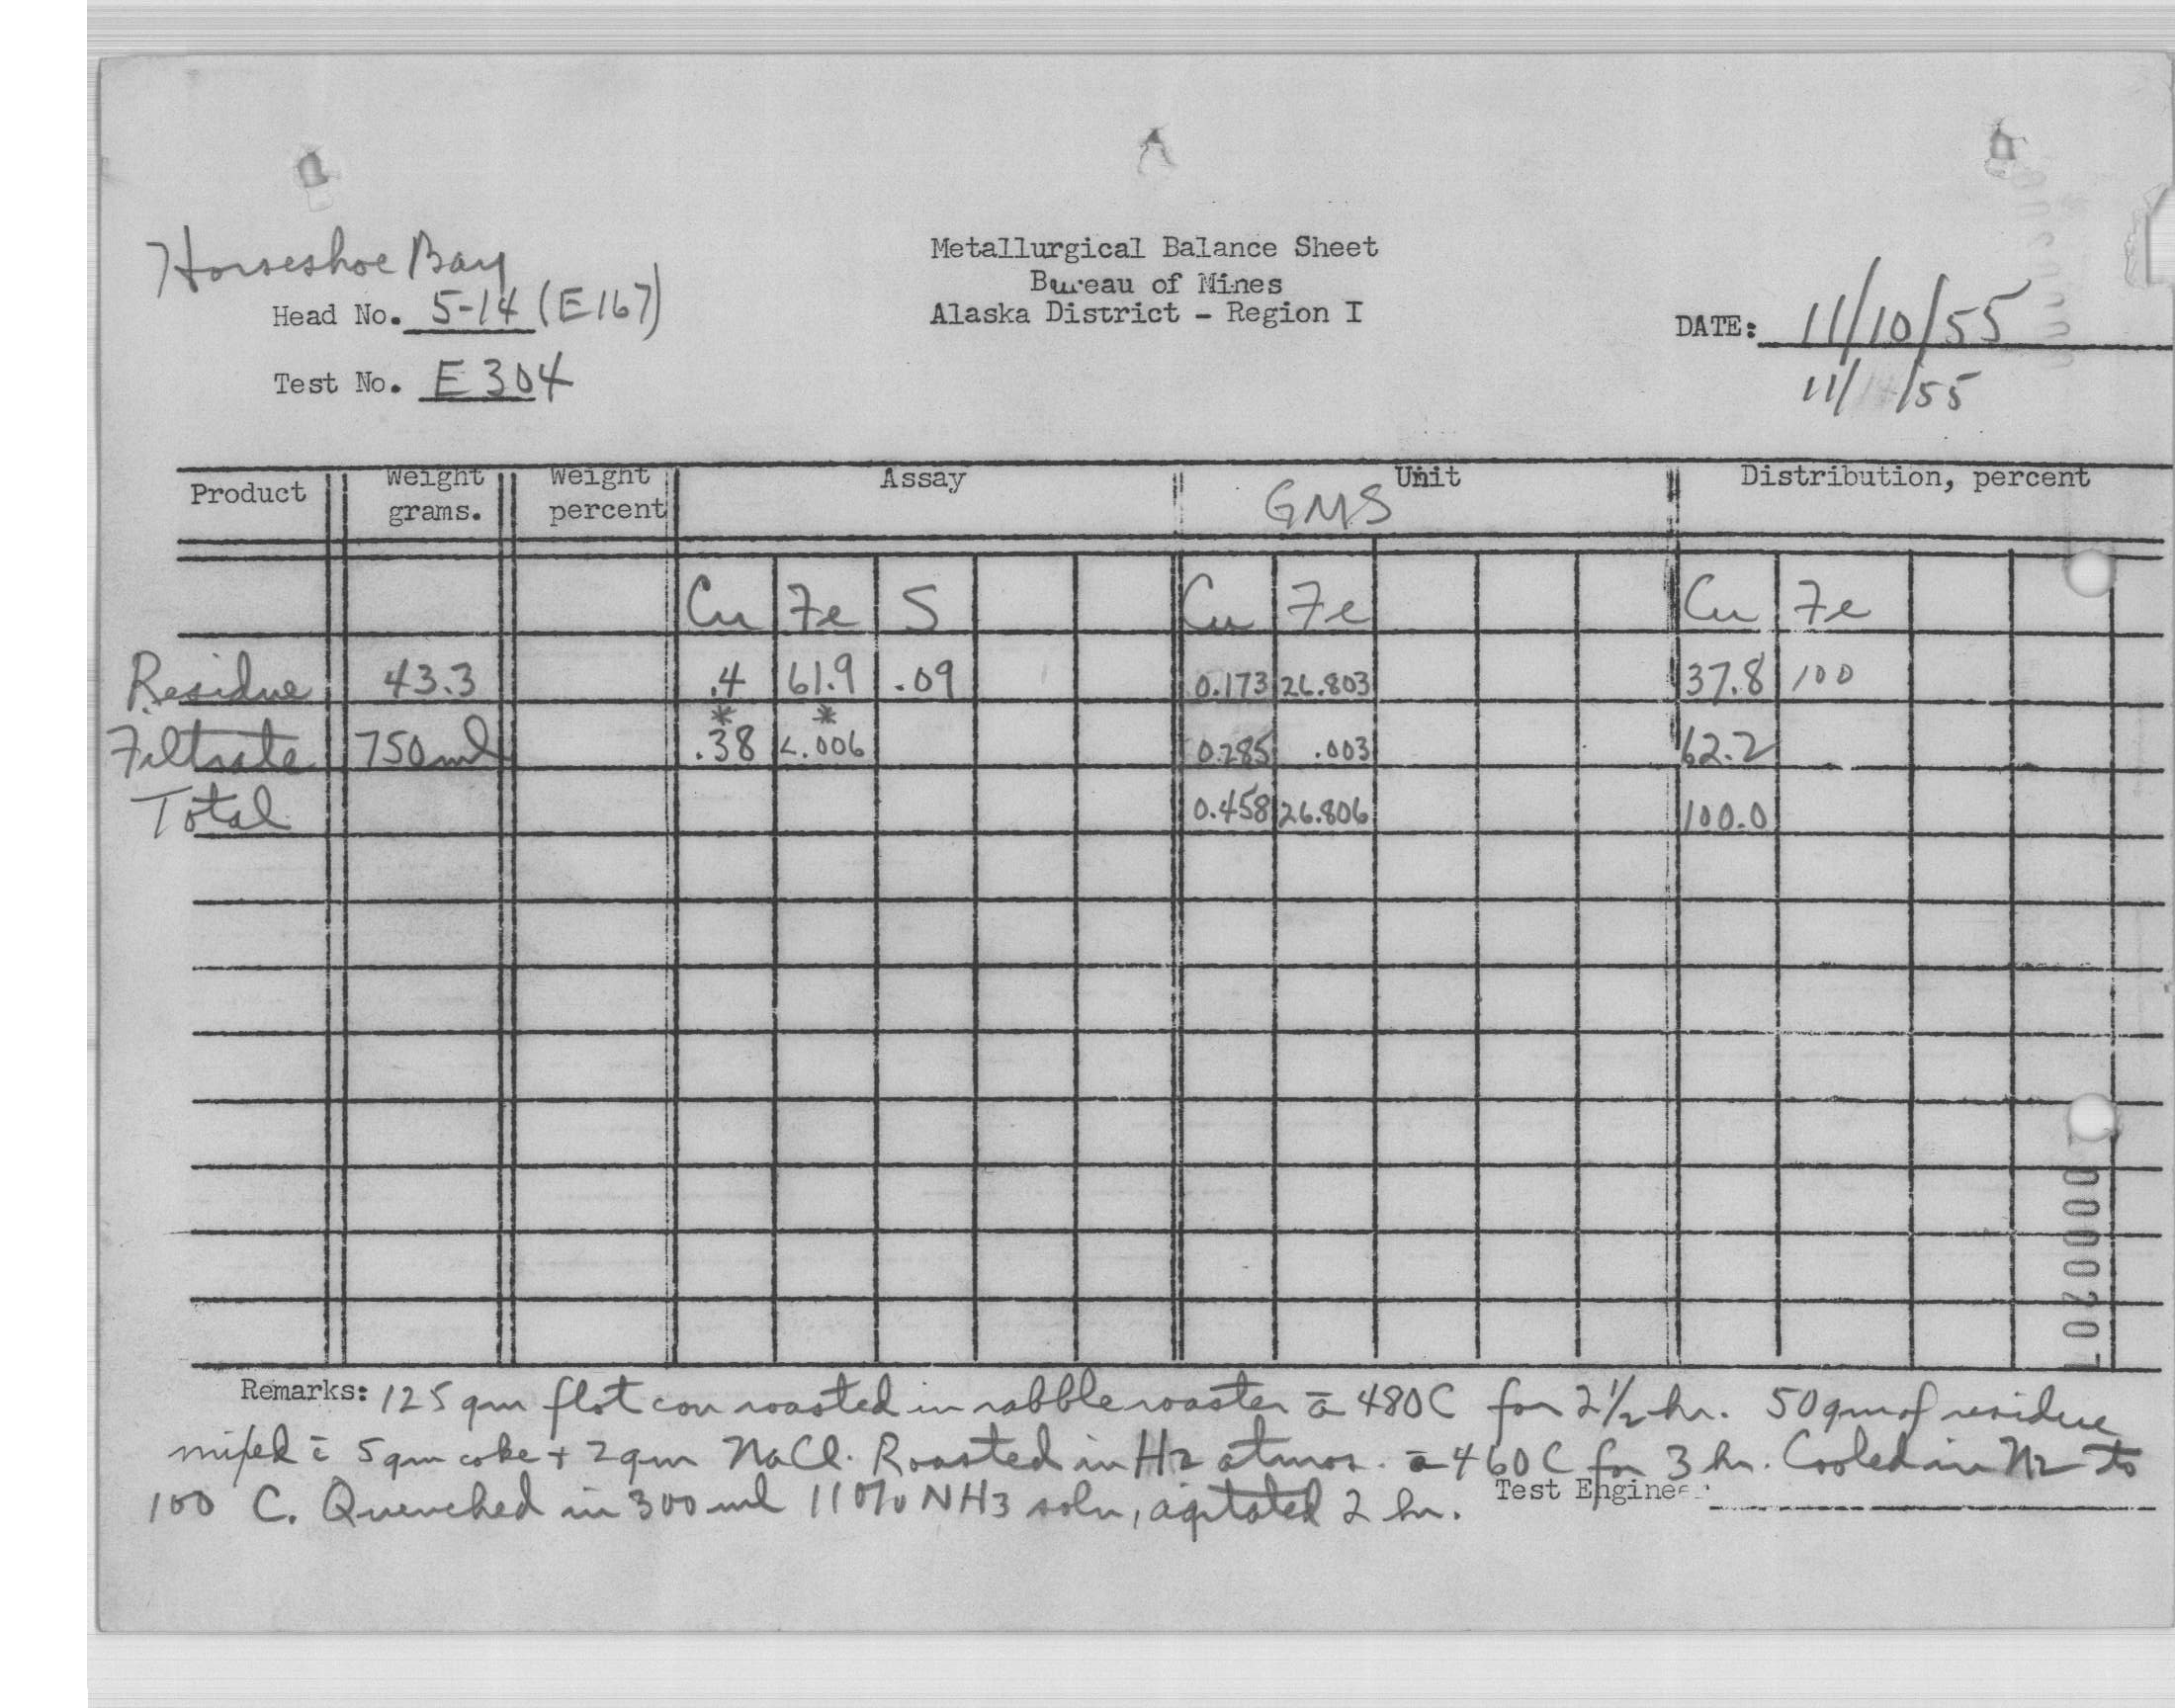 Horseshoe Bay
Metallurgical Balance Sheet
Bureau of Mines
Alaska District - Region I
Head No. 5-14 (E167)
DATE: 11/10/55
Test No. E 304
11/ /55
Product Weight grams. Weight percent Assay Unit Distribution, percent
GMS
Cu Fe S Cu Fe Cu Fe
Residue 43.3 .4 61.9 .09 0.173 26.803 37.8 100
* *
Filtrate 750ml .38 <.006 0.285 .003 62.2
Total 0.458 26.806 100.0
Remarks: 125 gm flot con roasted in rabble roaster @ 480C for 2 1/2 hr. 50 gm of residue
mixed c̄ 5 gm coke + 2 gm NaCl. Roasted in H2 atmos. @ 460 C for 3 hr. Cooled in N2 to
100 C. Quenched in 300 ml 11% NH3 soln, agitated 2 hr. Test Engineer
000020